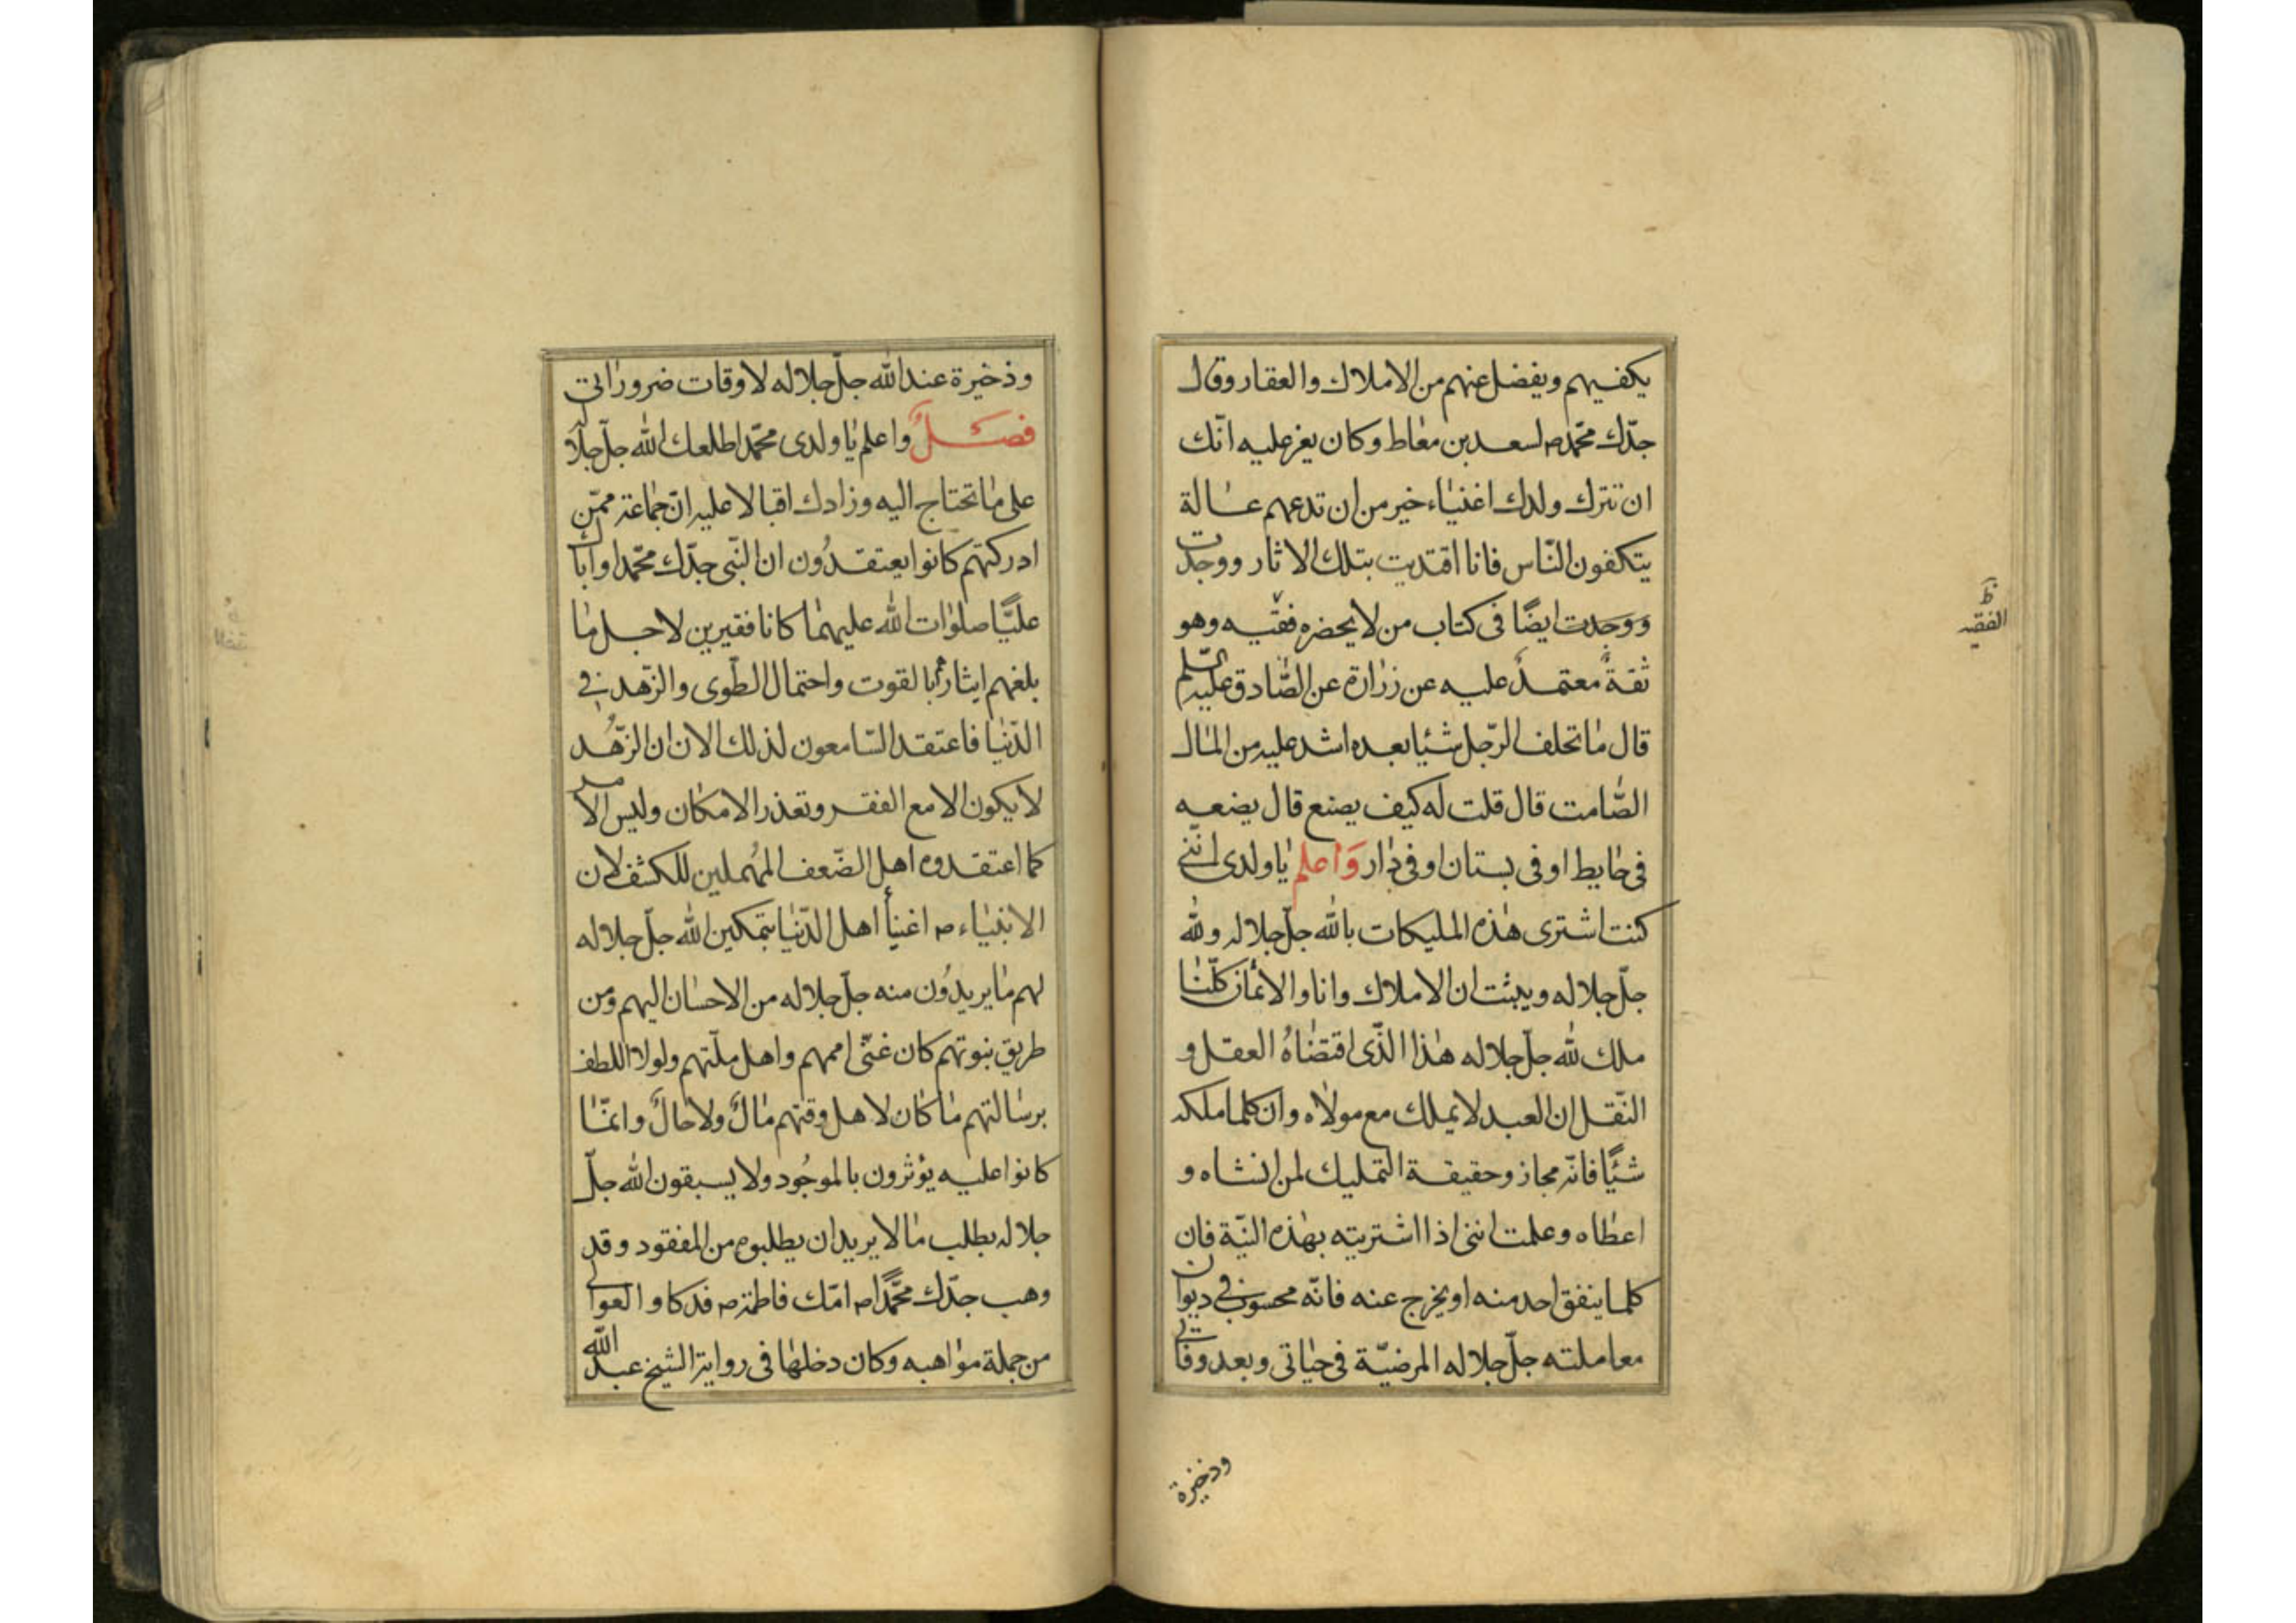 يكفيهم ويفضل عنهم من الاملاك والعقار وقال
جدّك محمّد ص لسعد بن معاط وكان يعز عليه انّك
ان تترك ولدك اغنياء خير من ان تدعهم عالة
يتكففون النّاس فانا اقتديت بتلك الاثار ووجدت
ووجدت ايضًا فى كتاب من لا يحضره فقيه وهو
ثقةٌ معتمدٌ عليه عن زرارة عن الصّادق عليه السّلم
قال ما تخلف الرّجل شيئا بعده اشد عليه من المال
الصّامت قال قلت له كيف يصنع قال يضعه
فى حايط او فى بستان او فى دار وَاعلم يا ولدى انّني
كنت اشترى هذه المليكات بالله جلّ جلاله ولله
جلّ جلاله وبيثت ان الاملاك وانا والاثمان كلّنا
ملك لله جلّ جلاله هذا الذّى اقتضاهُ العقل و
النّقل ان العبد لا يملك مع مولاه وان كلما ملكه
شيًّا فانّه مجاز وحقيقة التمليك لمن انشاه و
اعطاه وعلمت اننى اذا اشتريته بهذه النيّة فان
كلما ينفق احد منه او يخرج عنه فانّه محسوب في ديوان
معاملته جلّ جلاله المرضيّة فى حياتى وبعد وفاتى
وذخيرة
ظ
الفقيه
وذخيرة عند الله جلّ جلاله لاوقات ضروراتى
فصلٌ واعلم يا ولدى محمّد اطلعك الله جلّ جلاله
على ما تحتاج اليه وزادك اقبالا عليه انّ جماعة ممّن
ادركتهم كانوا يعتقدُون ان النّبى جدّك محمّدا واباك
عليًّا صلوات الله عليهما كانا فقيرين لاجل ما
بلغهم ايثارهُما بالقوت واحتمال الطّوى والزّهد في
الدّنيا فاعتقد السّامعون لذلك الان ان الزّهُد
لا يكون الا مع الفقر وتعذر الامكان وليس الامر
كما اعتقدوه اهل الضّعف المُهملين للكشف لان
الانبياء ص اغنيأ اهل الدّنيا بتمكين الله جلّ جلاله
لهم ما يريدُون منه جلّ جلاله من الاحسان اليهم ومن
طريق نبوتهم كان غنّى اممهم واهل ملّتهم ولولا اللطف
برسالتهم ما كان لاهل وقتهم مالٌ ولا حالٌ وانمّا
كانوا عليه يؤثرون بالموجُود ولا يسبقون الله جلّ
جلاله بطلب ما لا يريد ان يطلبوه من المفقود وقد
وهب جدّك محمّدًا ص امّك فاطمة ص فدكا والعوالى
من جملة مواهبه وكان دخلها فى رواية الشيخ عبد الله